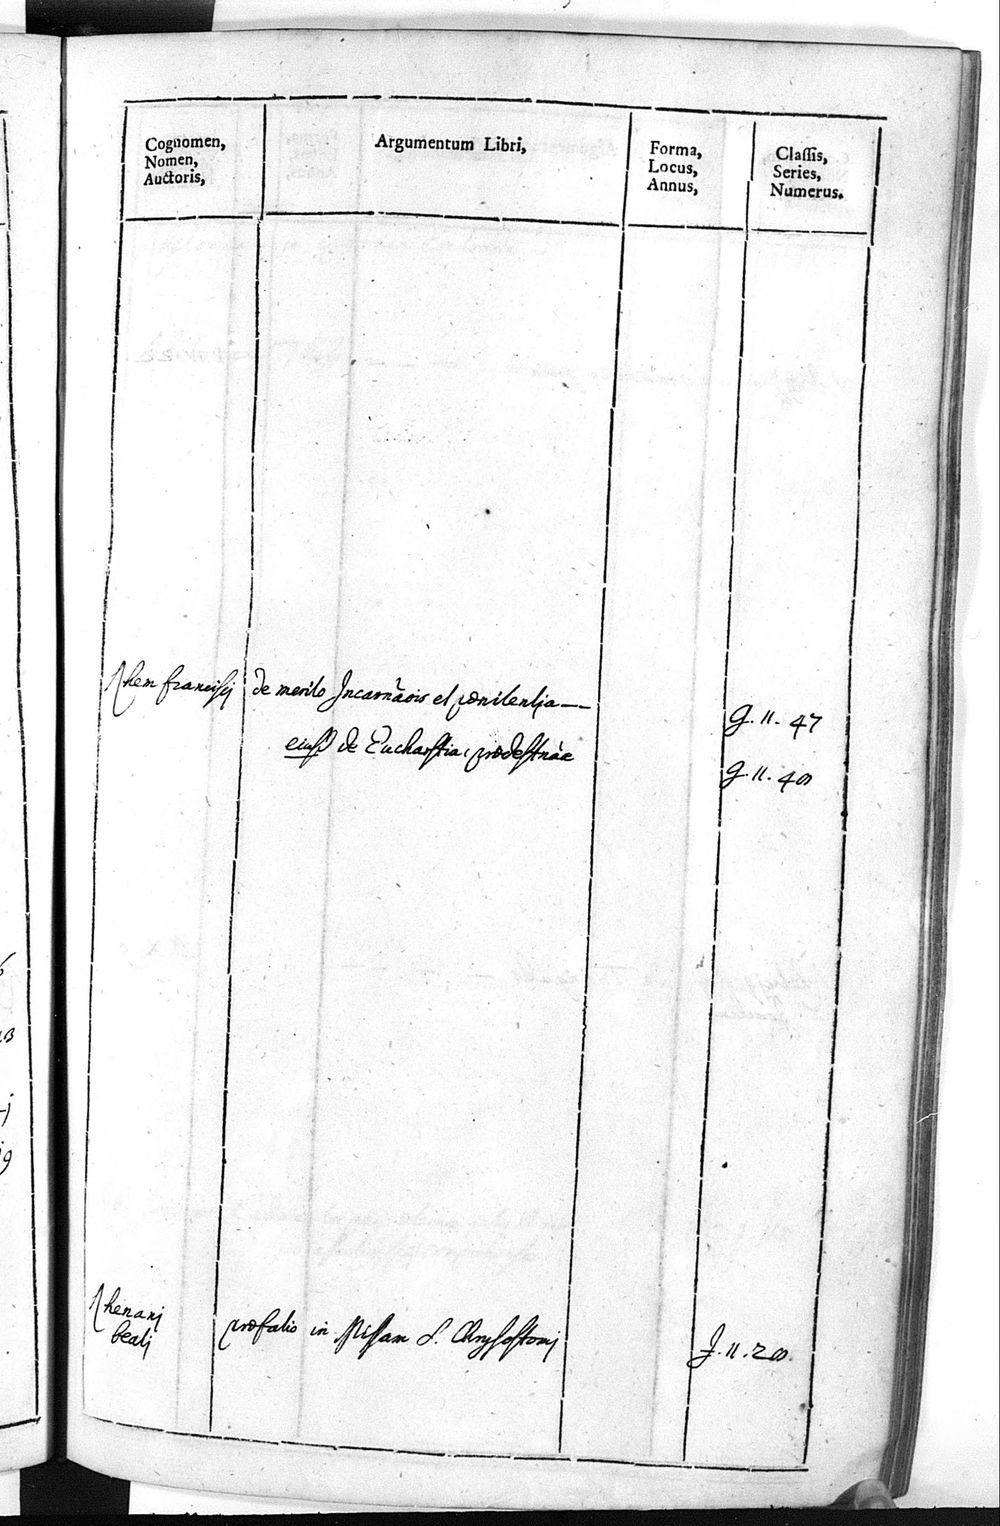 Cognomen,
Nomen,
Auctoris,
Argumentum Libri,
Forma,
Locus,
Annus,
Classis,
Series,
Numerus.
Rhem francisci de merito Incarnãois et pœnitentia
g. 11. 47
de Eucharistia, prædestinãe
g. 11. 40
Rhenani
beati
præfatio in Missam S. Chrysostomi
J. 11. 20.